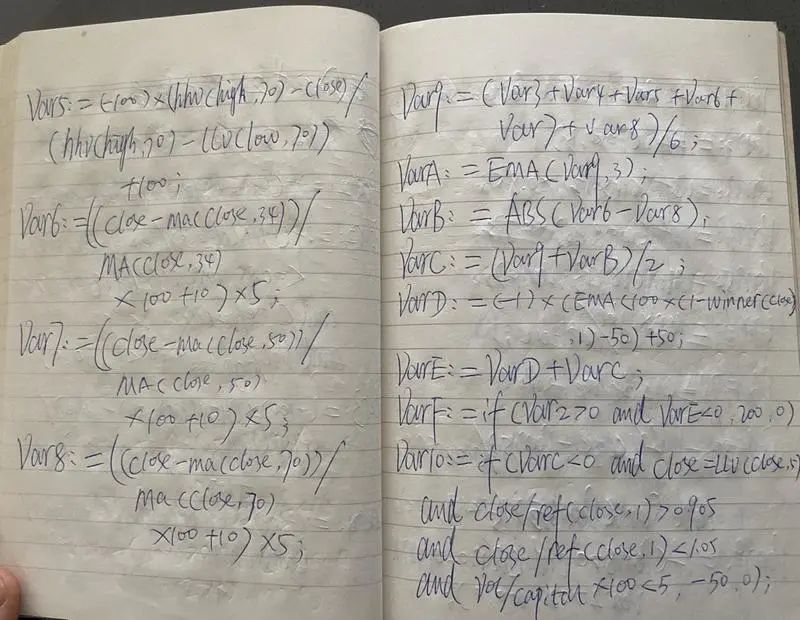 Var5:=(-100)×(hhv(high,70)-close)/
(hhv(high,70)-LLV(low,70))
+100;
Var6:=((close-ma(close,34))/
MA(close,34)
×100+10)×5;
Var7:=((close-ma(close,50))/
MA(close,50)
×100+10)×5;
Var8:=((close-ma(close,70))/
Ma(close,70)
×100+10)×5;
Var9:=(Var3+Var4+Var5+Var6+
Var7+Var8)/6;
VarA:=EMA(Var9,3);
VarB:=ABS(Var6-Var8);
VarC:=(Var9+VarB)/2;
VarD:=(-1)×(EMA(100×(1-winner(close)
,1)-50)+50;
VarE:=VarD+VarC;
VarF:=if(Var2>0 and VarE<0,200,0)
Var10:=if(VarC<0 and close=LLV(close,5)
and close/ref(close,1)>0.905
and close/ref(close,1)<1.05
and Vol/capital×100<5,-50,0);